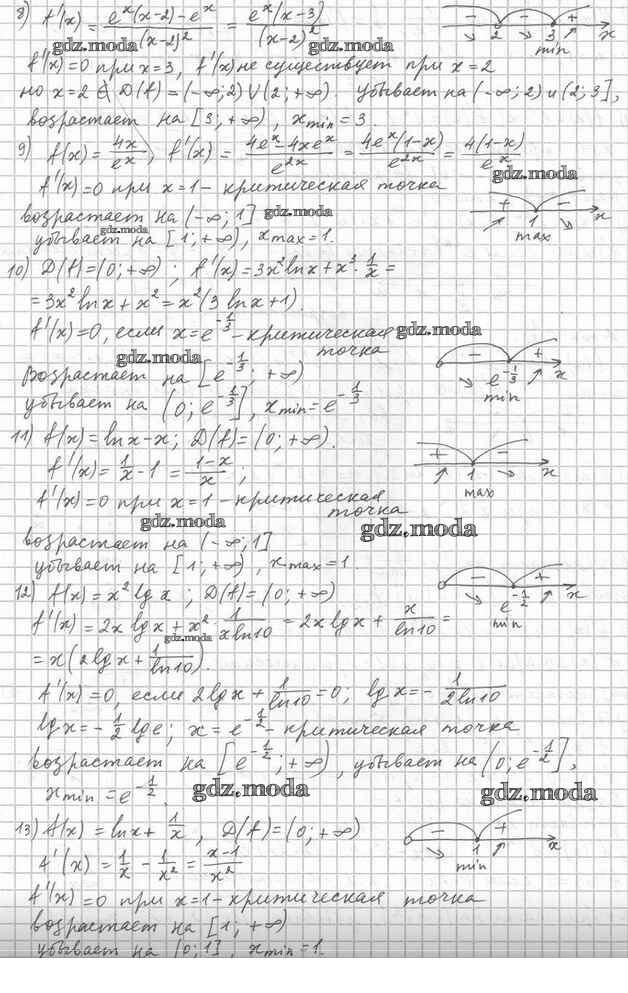 8) f'(x) = (eˣ(x-2) - eˣ)/(x-2)² = eˣ(x-3)/(x-2)²
- - + 2 3 x min
gdz.moda
gdz.moda
f'(x)=0 при x=3, f'(x) не существует при x=2
но x=2 ∉ D(f) = (-∞;2) ∪ (2;+∞). убывает на (-∞;2) и (2;3],
возрастает на [3;+∞), x min = 3.
gdz.moda
9) f(x) = 4x/eˣ, f'(x) = (4eˣ - 4xeˣ)/e²ˣ = 4eˣ(1-x)/e²ˣ = 4(1-x)/eˣ
gdz.moda
f'(x)=0 при x=1 - критическая точка
возрастает на (-∞;1]
gdz.moda
gdz.moda
+ - 1 x max
убывает на [1;+∞), x max = 1.
10) D(f)=(0;+∞); f'(x)=3x² ln x + x³·1/x =
= 3x² ln x + x² = x²(3 ln x + 1).
f'(x)=0, если x = e^(-1/3) - критическая
точка
gdz.moda
gdz.moda
- + e^(-1/3) x min
возрастает на [e^(-1/3); +∞)
убывает на (0; e^(-1/3)], x min = e^(-1/3)
11) f(x) = ln x - x; D(f)=(0;+∞).
+ - 1 x max
f'(x) = 1/x - 1 = (1-x)/x;
f'(x)=0 при x=1 - критическая
точка
gdz.moda
gdz.moda
возрастает на (-∞;1]
убывает на [1;+∞), x max = 1.
12) f(x) = x² lg x; D(f)=(0;+∞)
- + e^(-1/2) x min
f'(x) = 2x lg x + x²·1/(x ln 10) = 2x lg x + x/ln 10 =
gdz.moda
= x(2 lg x + 1/ln 10).
f'(x)=0, если 2 lg x + 1/ln 10 = 0; lg x = - 1/(2 ln 10)
lg x = - 1/2 lg e; x = e^(-1/2) - критическая точка
возрастает на [e^(-1/2); +∞), убывает на (0; e^(-1/2)],
x min = e^(-1/2).
gdz.moda
gdz.moda
13) f(x) = ln x + 1/x, D(f)=(0;+∞)
- + 1 x min
f'(x) = 1/x - 1/x² = (x-1)/x²
f'(x)=0 при x=1 - критическая точка
возрастает на [1;+∞)
убывает на (0;1], x min = 1.